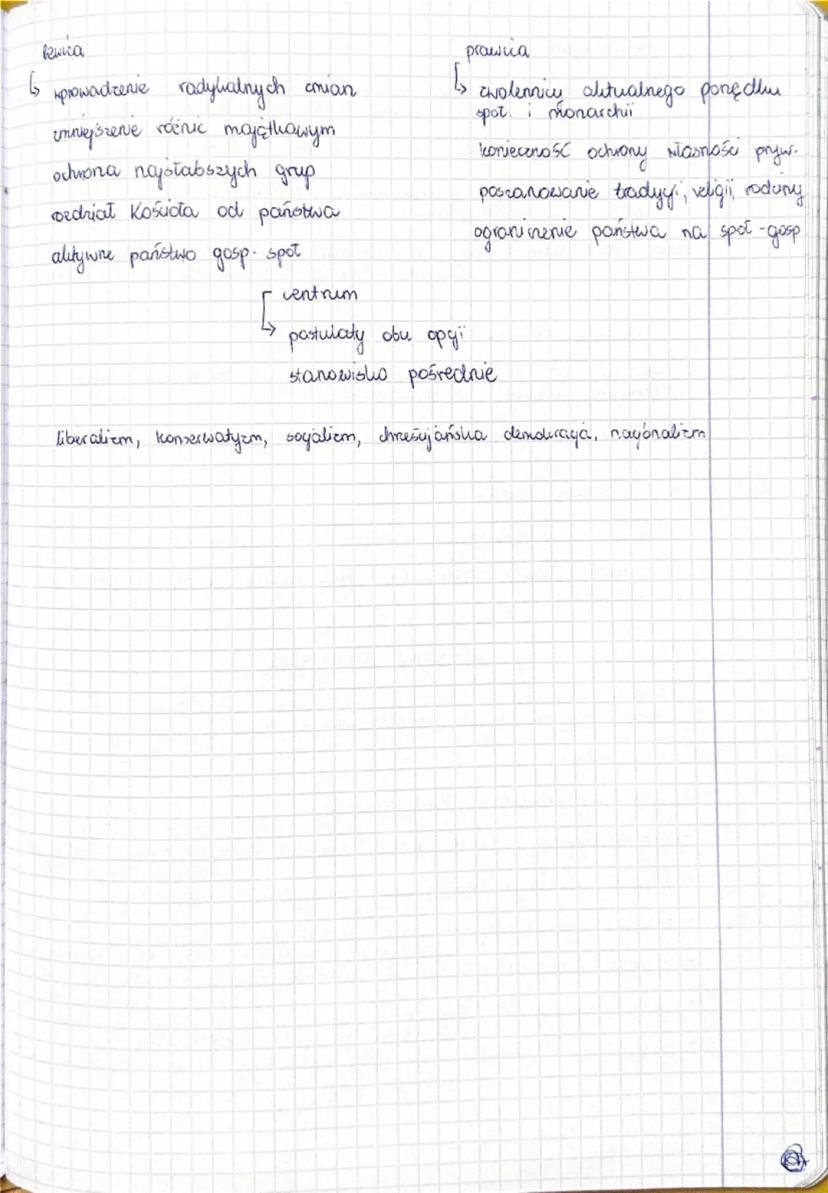 lewica
↳ wprowadzenie radykalnych zmian
zmniejszenie różnic majątkowym
ochrona najsłabszych grup
rozdział Kościoła od państwa
aktywne państwo gosp. społ
prawica
↳ zwolennicy aktualnego porządku
społ. i monarchii
konieczność ochrony własności pryw.
poszanowanie tradycji, religii, rodziny
ograniczenie państwa na społ-gosp
centrum
↳ postulaty obu opcji
stanowisko pośrednie
liberalizm, konserwatyzm, socjalizm, chrześcijańska demokracja, nacjonalizm